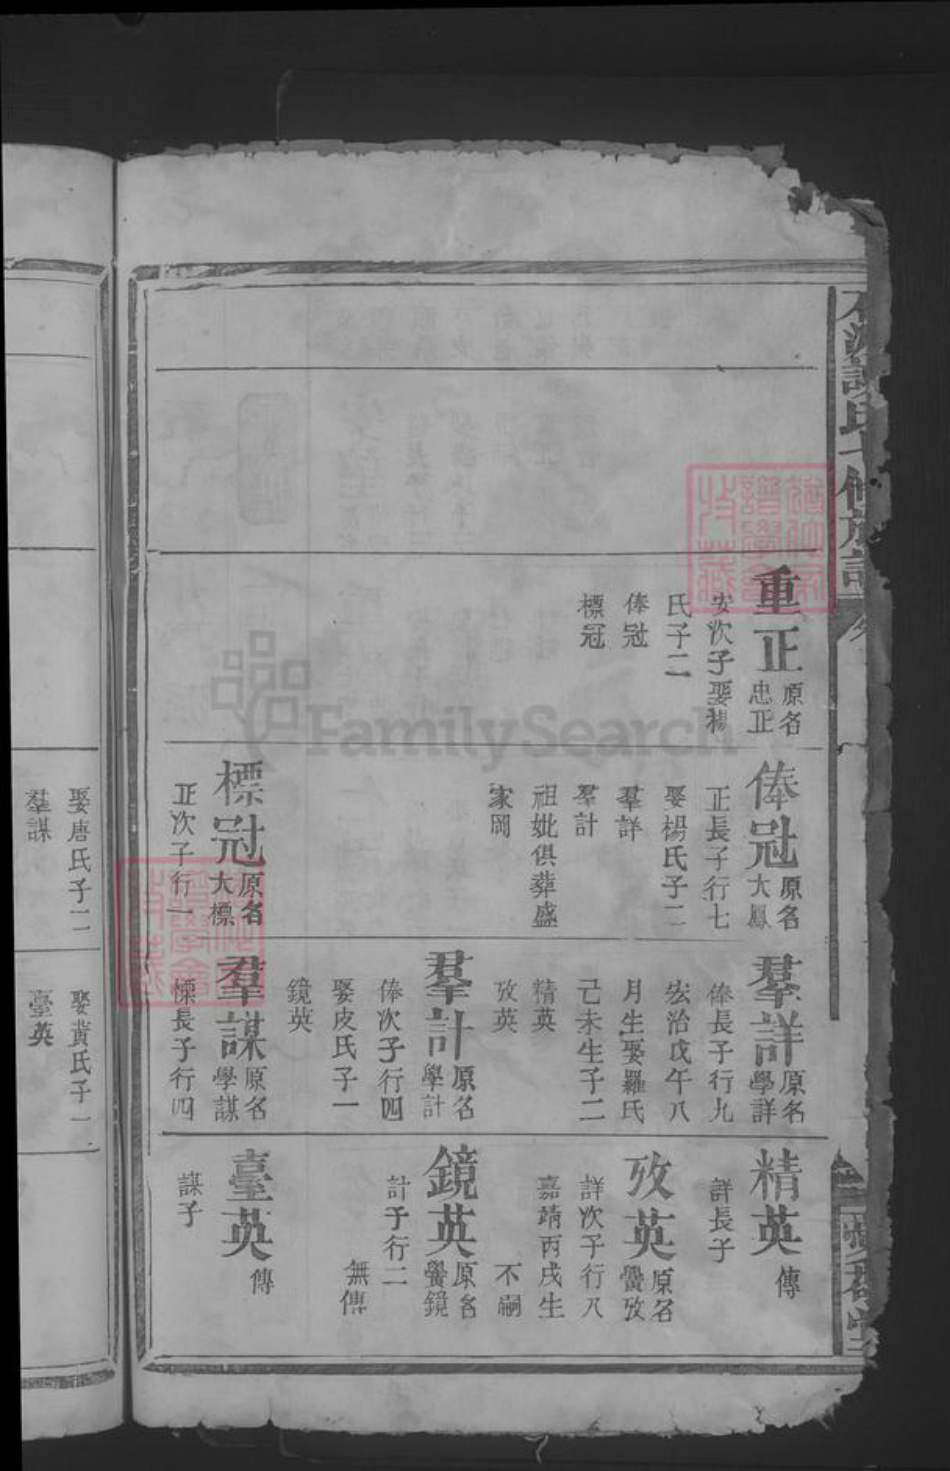 重正
原名
忠正
安次子娶楊
氏子二
俸冠
標冠
俸冠
原名
大鳳
正長子行七
娶楊氏子二
羣詳
羣計
祖妣俱葬盛
家岡
標冠
原名
大標
正次子行一
羣詳
原名
學詳
俸長子行九
宏治戊午八
月生娶羅氏
己未生子二
精英
攷英
羣計
原名
學計
俸次子行四
娶皮氏子一
鏡英
羣謀
原名
學謀
標長子行四
精英
傳
詳長子
攷英
原名
詳次子行八
嘉靖丙戌生
不嗣
鏡英
原名
計子行二
無傳
臺英
傳
謀子
娶唐氏子二
羣謀
娶黃氏子一
臺英
FamilySearch